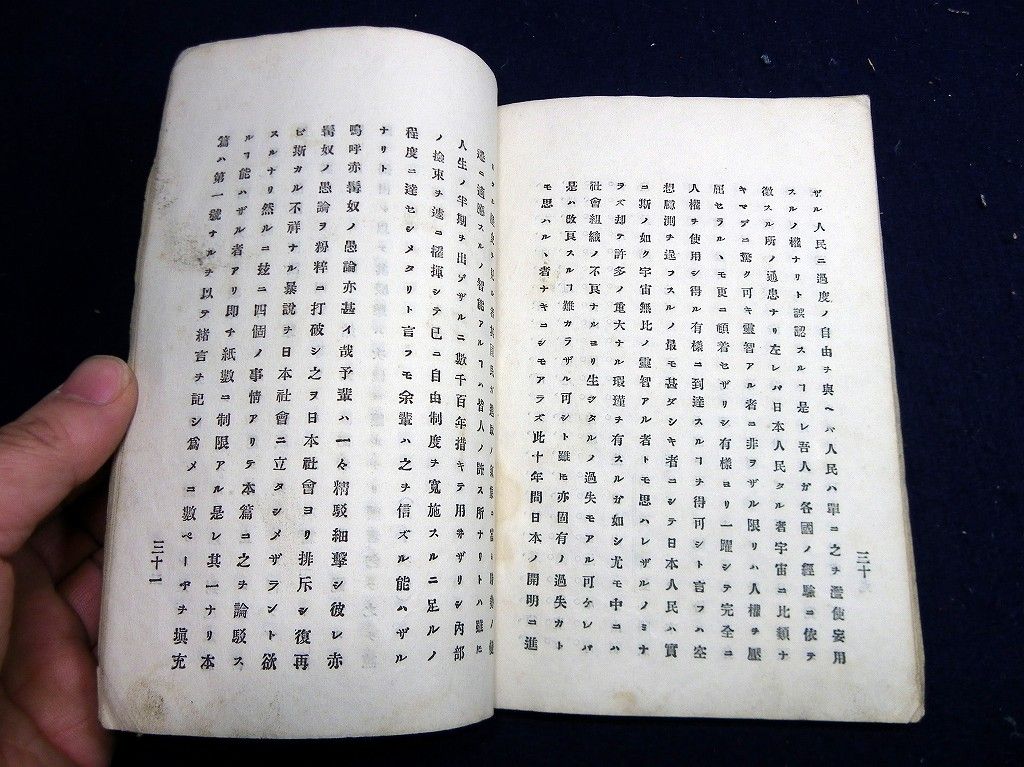 ザル人民ニ過度ノ自由チ與ヘバ人民ハ單ニ之チ濫使妄用
スルノ權ナリト誤認スルヿ是レ吾人ガ各國ノ經驗ニ依テ
徴スル所ノ通患ナリ左レバ日本人民タル者宇宙ニ比類ナ
キマデニ驚ク可キ靈智アル者ニ非ザル限リハ人權チ壓
屈セラルヽモ更ニ頓着セザリシ有樣ヨリ一躍シテ完全ニ
人權チ使用シ得ル有樣ニ到達スルヿチ得可シト言フハ空
想臆測チ逞フスルノ最モ甚ダシキ者ニシテ日本人民ハ實
ニ斯ノ如ク宇宙無比ノ靈智アル者トモ思ハレザルノミナ
ラズ却テ許多ノ重大ナル瑕瑾チ有スルガ如シ尤モ中ニハ
社會組織ノ不良ナルヨリ生ジタルノ過失モアル可ケレバ
是ハ改良スルヿ難カラザル可シト雖モ亦固有ノ過失カト
モ思ハルヽ者ナキニシモアラズ此十年間日本ノ開明ニ進
三十
適ニ適施スルノ智能アルヿハ皆人ノ許ス所ナリトハ雖ヒ
人生ノ半期チ出デザルニ數千百年措キテ用ネザリシ內部
ノ撿束チ速ニ擢揮シテ已ニ自由制度チ寬施スルニ足ルノ
程度ニ達セシメタリト言フモ余輩ハ之チ信ズル能ハザル
ナリト
嗚呼赤髯奴ノ愚論亦甚イ哉予輩ハ一々精駁細擊シ彼レ赤
髯奴ノ愚論ヲ粉粹ニ打破シ之ヲ日本社會ヨリ排斥シ復再
ビ斯カル不祥ナル暴說チ日本社會ニ立タシメザラント欲
スルナリ然ルニ玆ニ四個ノ事情アリテ本篇ニ之チ論駁ス
ルヿ能ハザル者アリ即チ紙數ニ制限アル是レ其一ナリ本
篇ハ第一號ナルチ以テ緒言チ記シ爲メニ數ペーヂチ塡充
三十一